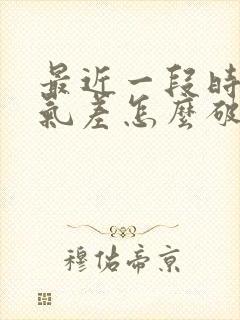 最近一段時
氣差怎麼破
穆佑帝京